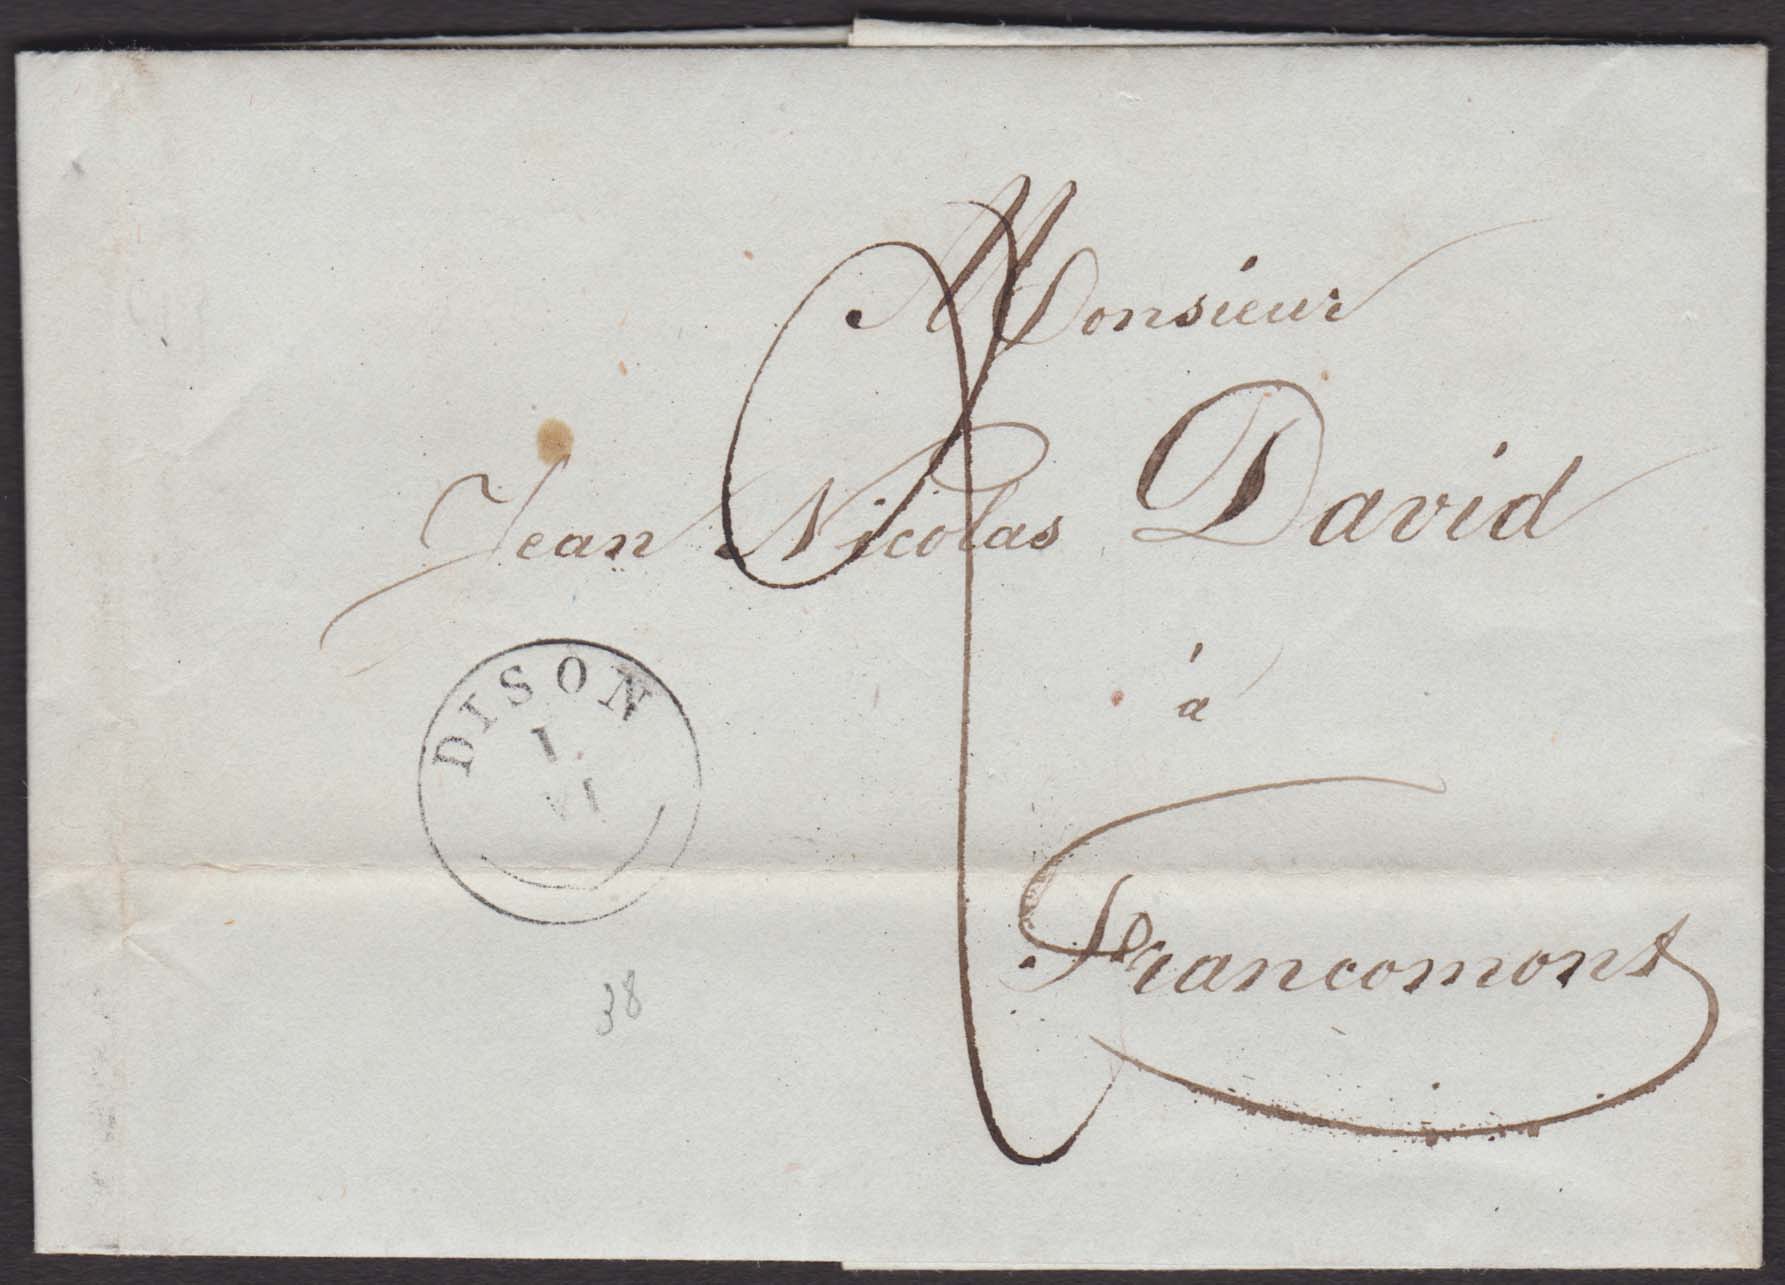 Monsieur
Jean Nicolas David
à
Francomont
DISON
1
VI
38